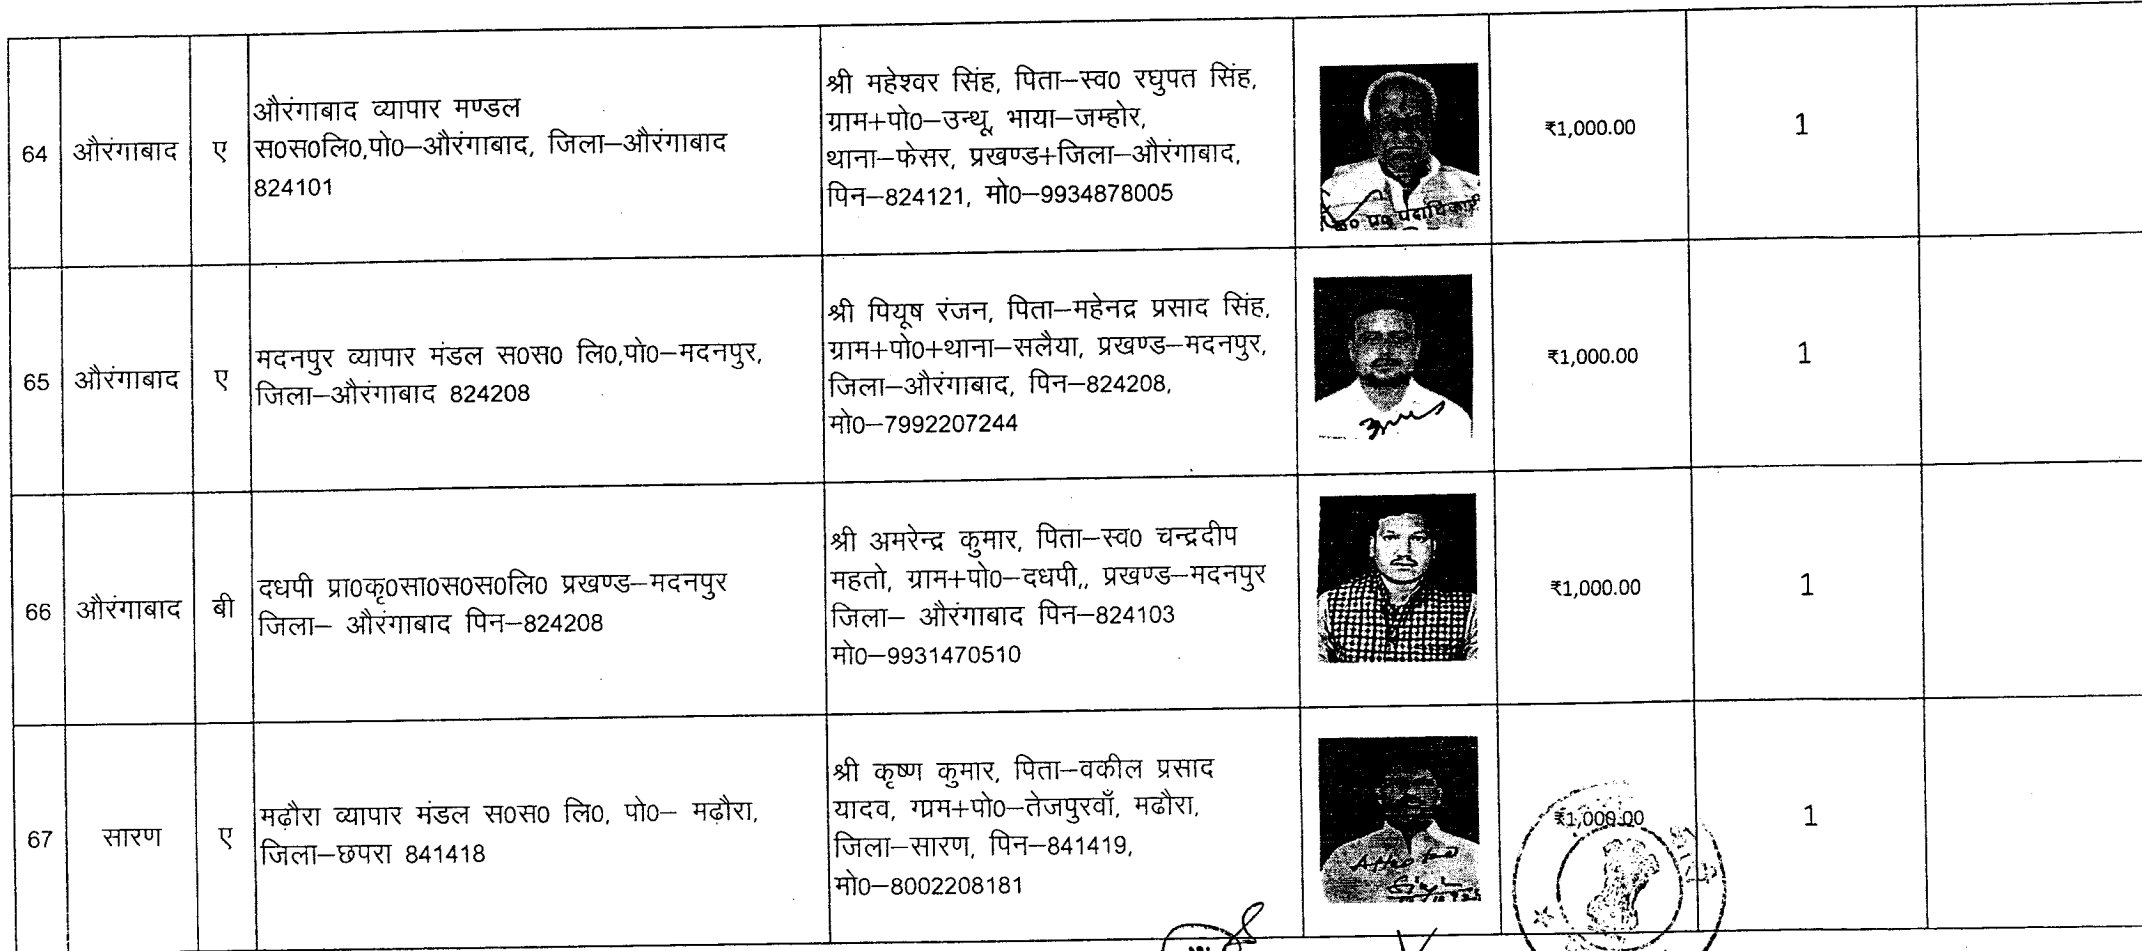 64
औरंगाबाद
ए
औरंगाबाद व्यापार मण्डल
स0स0लि0,पो0–औरंगाबाद, जिला–औरंगाबाद
824101
श्री महेश्वर सिंह, पिता–स्व0 रघुपत सिंह,
ग्राम+पो0–उन्थू, भाया–जम्होर,
थाना–फेसर, प्रखण्ड+जिला–औरंगाबाद,
पिन–824121, मो0–9934878005
प्र0 पदाधिकारी
₹1,000.00
1
65
औरंगाबाद
ए
मदनपुर व्यापार मंडल स0स0 लि0,पो0–मदनपुर,
जिला–औरंगाबाद 824208
श्री पियूष रंजन, पिता–महेनद्र प्रसाद सिंह,
ग्राम+पो0+थाना–सलैया, प्रखण्ड–मदनपुर,
जिला–औरंगाबाद, पिन–824208,
मो0–7992207244
₹1,000.00
1
66
औरंगाबाद
बी
दधपी प्रा0कृ0सा0स0स0लि0 प्रखण्ड–मदनपुर
जिला– औरंगाबाद पिन–824208
श्री अमरेन्द्र कुमार, पिता–स्व0 चन्द्रदीप
महतो, ग्राम+पो0–दधपी,, प्रखण्ड–मदनपुर
जिला– औरंगाबाद पिन–824103
मो0–9931470510
₹1,000.00
1
67
सारण
ए
मढ़ौरा व्यापार मंडल स0स0 लि0, पो0– मढ़ौरा,
जिला–छपरा 841418
श्री कृष्ण कुमार, पिता–वकील प्रसाद
यादव, ग्प्रम+पो0–तेजपुरवाँ, मढौरा,
जिला–सारण, पिन–841419,
मो0–8002208181
Attested
₹1,000.00
1